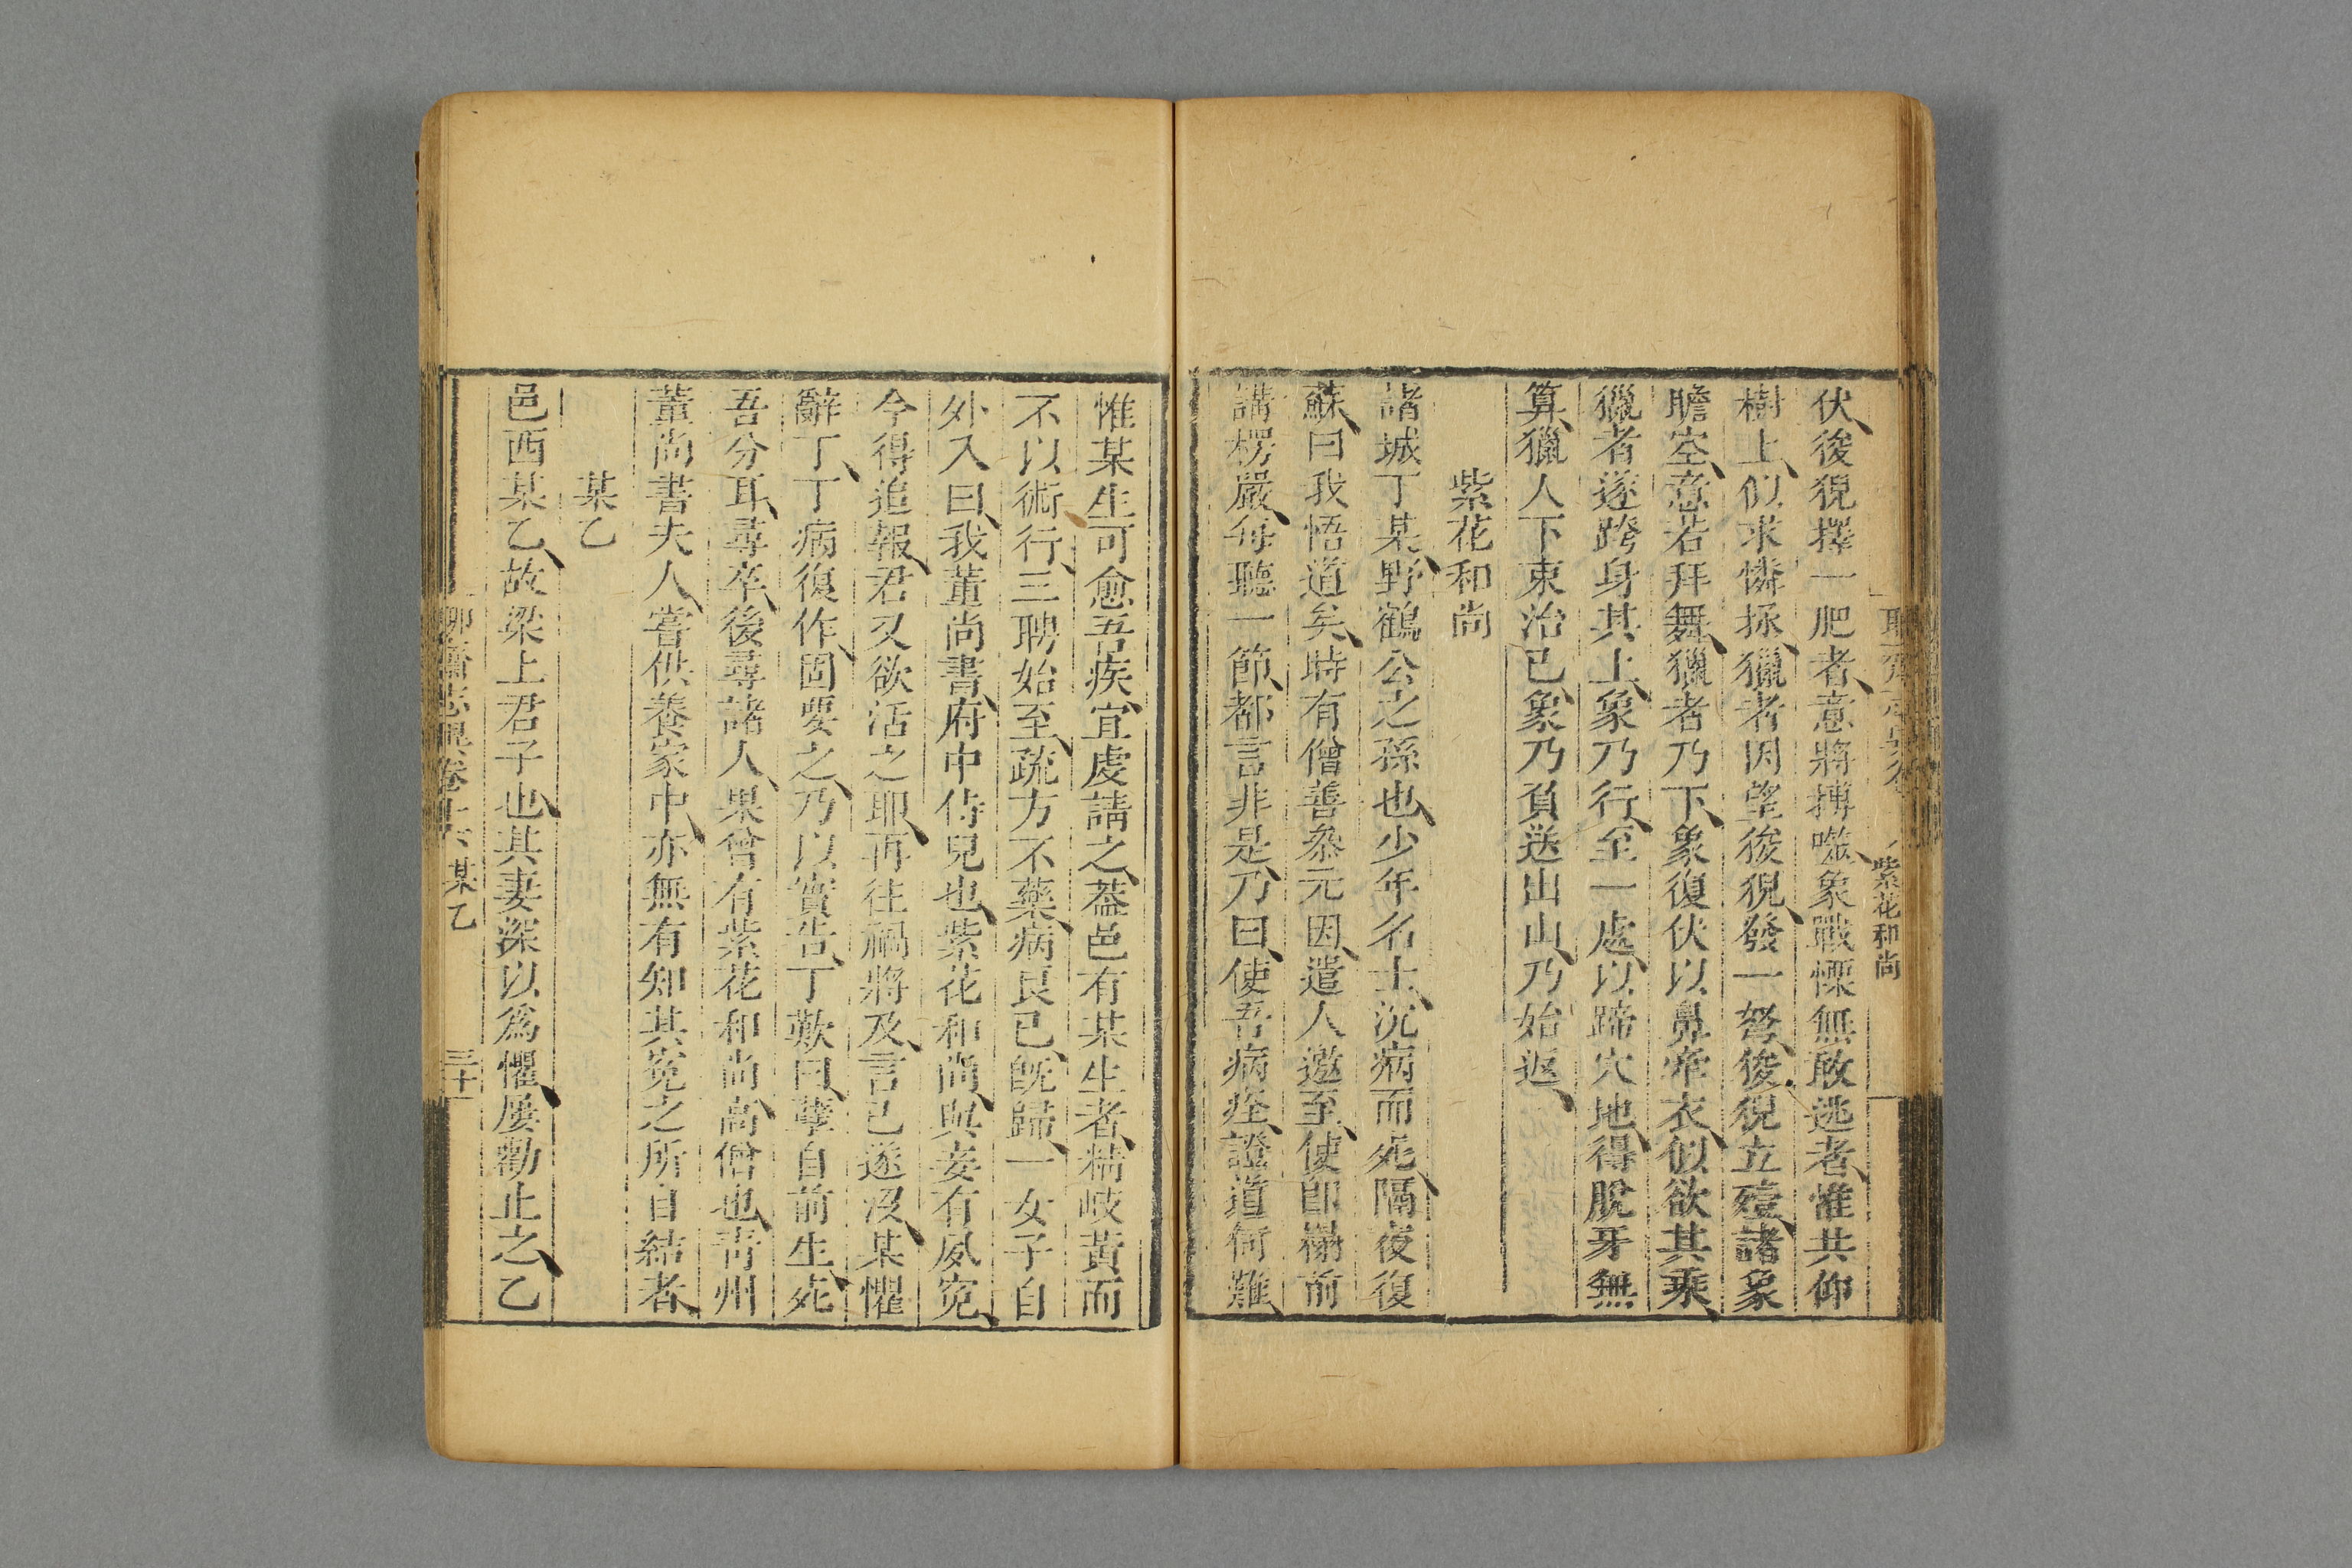 伏後猊擇一肥者意將搏噬象戰慄無敢逃者惟共仰
樹上似求憐拯獵者因望後猊發一弩後猊立殪諸象
瞻空意若拜舞獵者乃下象復伏以鼻牽衣似欲其乘
獵者遂跨身其上象乃行至一處以蹄穴地得脫牙無
算獵人下束治已象乃負送出山乃始返
紫花和尚
諸城丁某野鶴公之孫也少年名士沉病而死隔夜復
蘇曰我悟道矣時有僧善叅元因遣人邀至使卽榻前
講楞嚴每聽一節都言非是乃曰使吾病痊證道何難
紫花和尚
惟某生可愈吾疾宜虔請之葢邑有某生者精岐黃而
不以術行三聘始至疏方不藥病良已旣歸一女子自
外入曰我董尚書府中侍兒也紫花和尚與妾有夙寃
今得追報君又欲活之耶再往禍將及言已遂沒某懼
辭丁丁病復作固要之乃以實告丁歎曰孽自前生死
吾分耳尋卒後尋諸人果曾有紫花和尚高僧也靑州
董尚書夫人嘗供養家中亦無有知其寃之所自結者
某乙
邑西某乙故梁上君子也其妻深以爲懼屢勸止之乙
聊齋志異卷十六 某乙 三十一